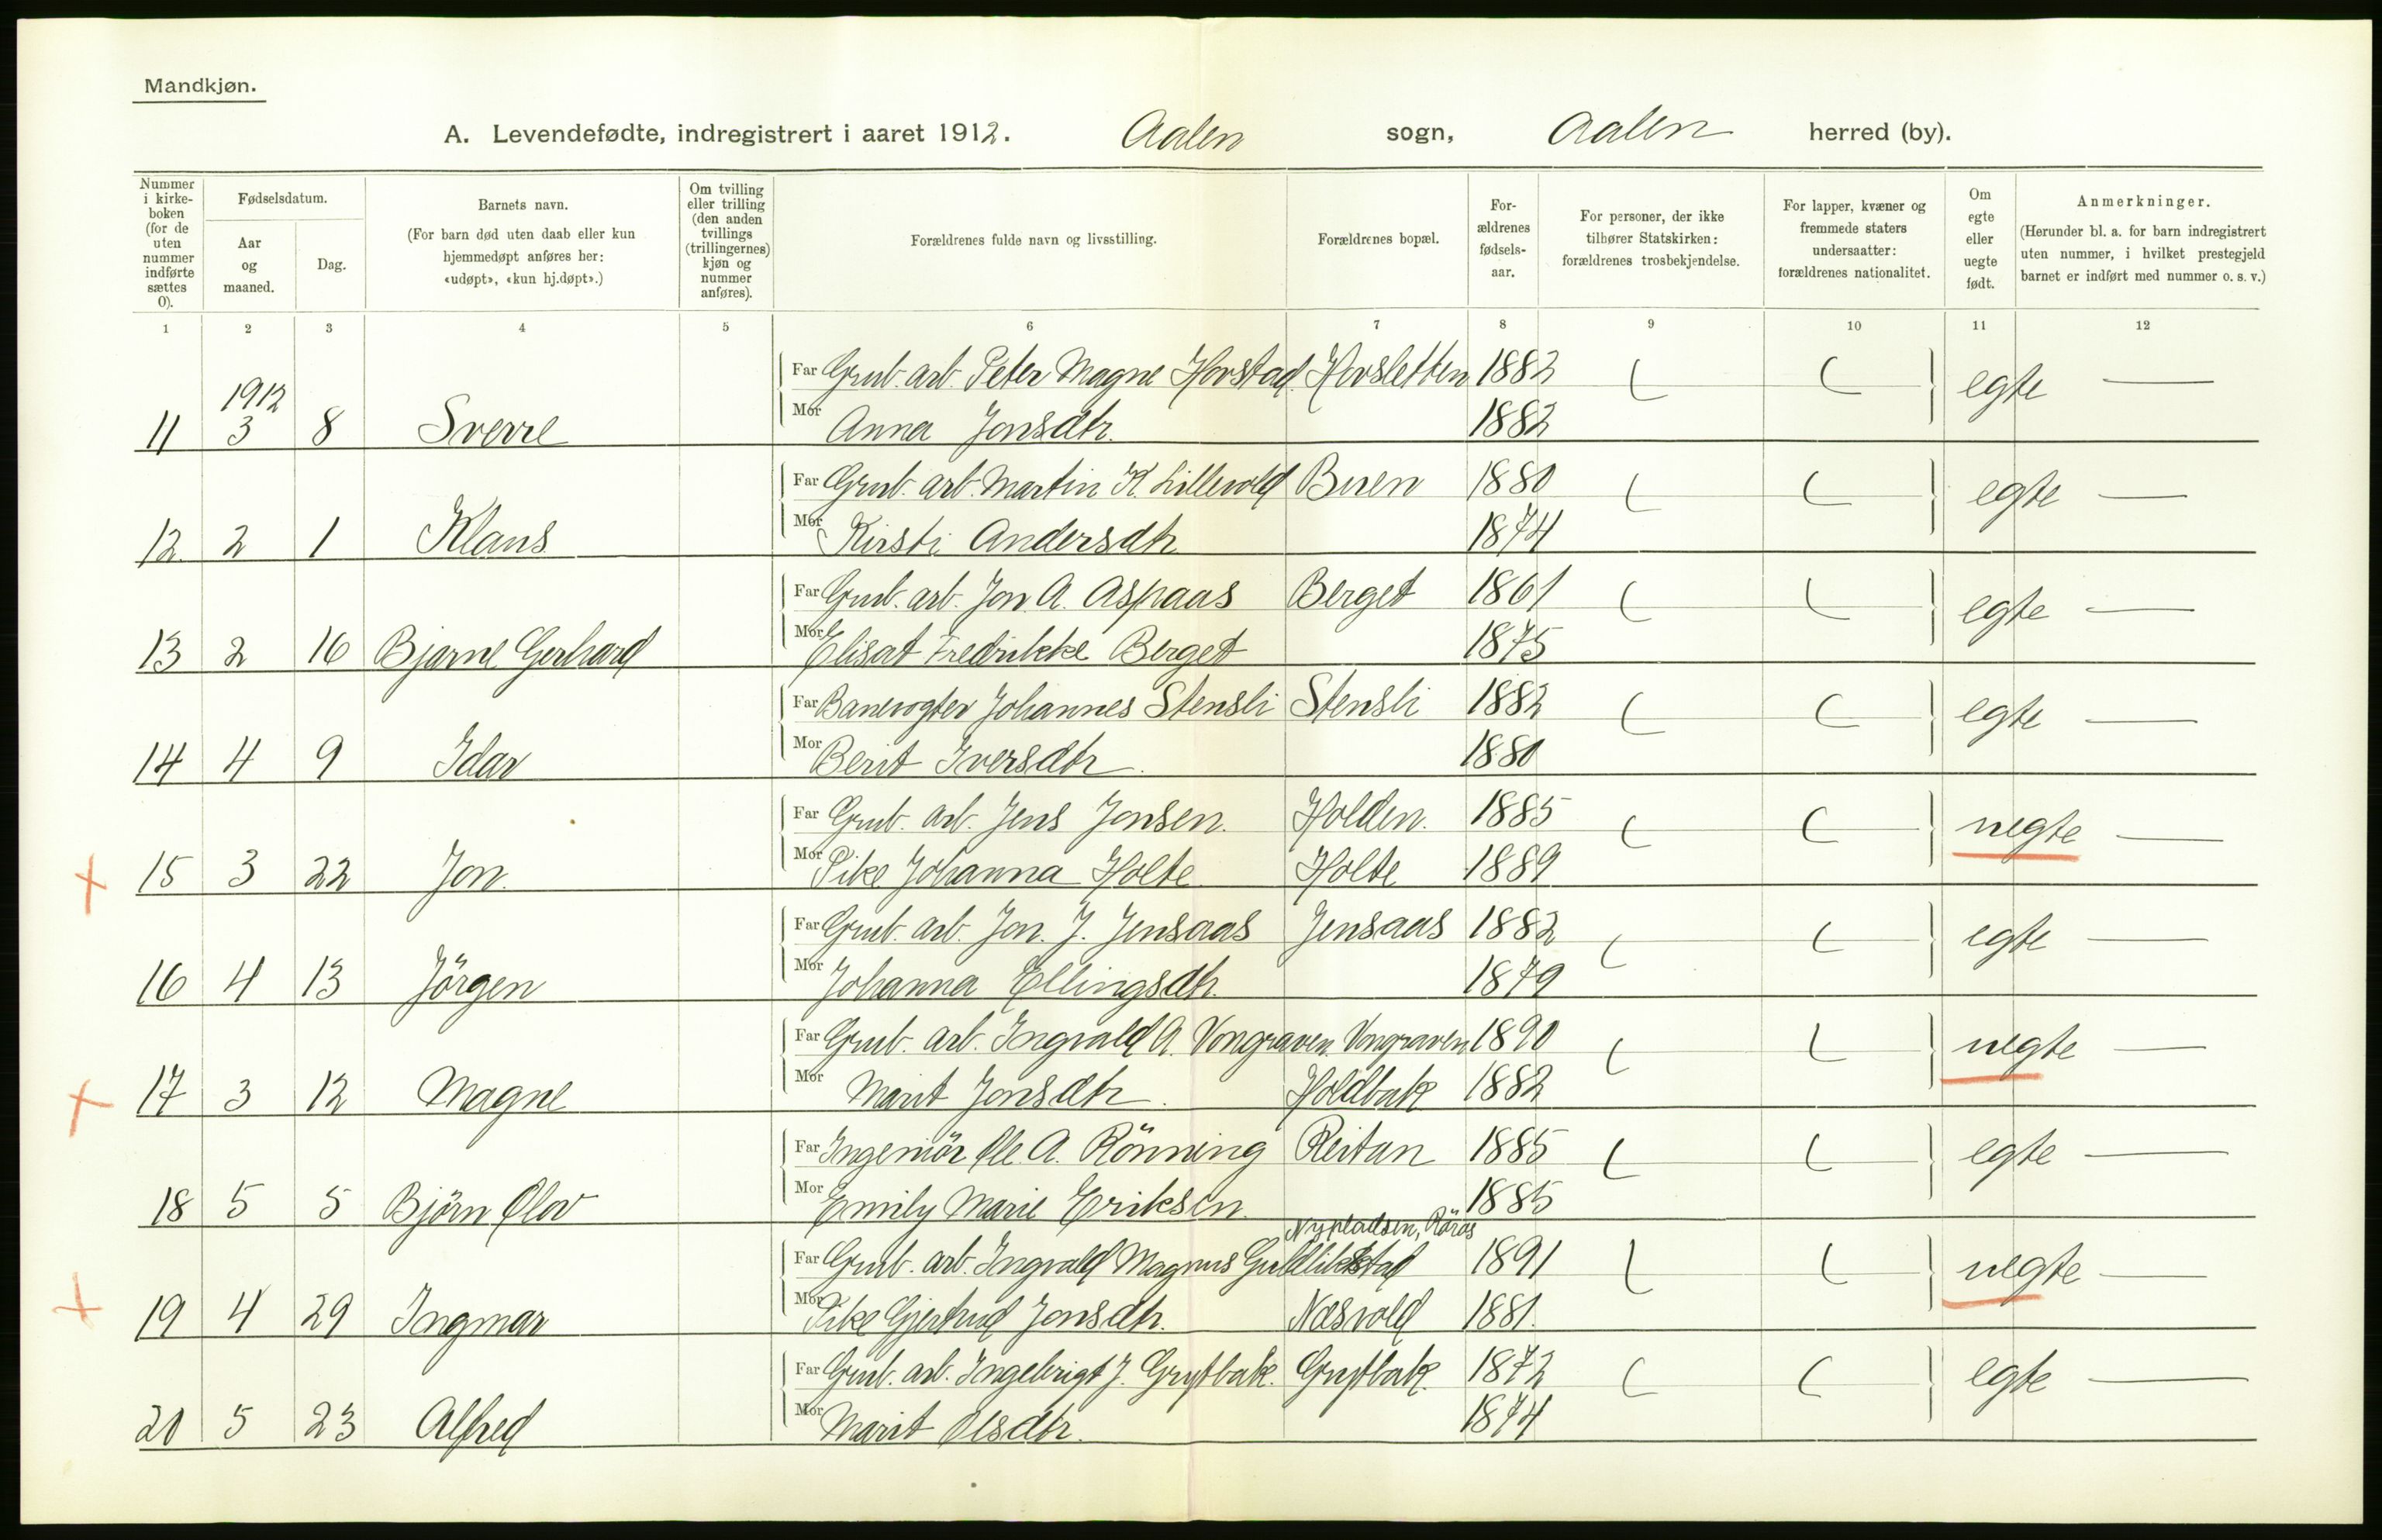 Mandkjøn.
A. Levendefødte, indregistrert i aaret 1912. Aalen sogn, Aalen herred (by).
Nummer i kirke-boken (for de uten nummer indførte sættes 0).
Fødselsdatum.
Aar og maaned.
Dag.
Barnets navn.
(For barn død uten daab eller kun hjemmedøpt anføres her: «udøpt», «kun hj.døpt».)
Om tvilling eller trilling (den anden tvillings (trillingernes) kjøn og nummer anføres).
Forældrenes fulde navn og livsstilling.
Forældrenes bopæl.
For-ældrenes fødsels-aar.
For personer, der ikke tilhører Statskirken: forældrenes trosbekjendelse.
For lapper, kvæner og fremmede staters undersaatter: forældrenes nationalitet.
Om egte eller uegte født.
Anmerkninger.
(Herunder bl. a. for barn indregistrert uten nummer, i hvilket prestegjeld barnet er indført med nummer o. s. v.)
1 2 3 4 5 6 7 8 9 10 11 12
Far Grub. arb. Peter Magne Hovstad. Hovsletten 1882 egte —
1912
11 3 8 Sverre Mor Anna Jonsdtr. 1882
Far Grub. arb. Martin K. Lillevold Buen 1880 egte —
12. 2 1 Klaus Mor Kirsti Andersdtr 1874
Far Grub. arb. Jon A. Aspaas Berget 1861 egte —
13 2 16 Bjarne Gerhard Mor Elisat Fredrikke Berget 1875
Far Banevogter Johannes Stensli Stensli 1882 egte —
14 4 9 Idar Mor Berit Iversdtr. 1880
Far Grub. arb. Jens Jonsen. Holden. 1885 uegte —
15 3 22 Jon. Mor Pike Johanna Holte Holte 1889
Far Grub. arb. Jon. J. Jensaas Jensaas 1882 egte —
16 4 13 Jörgen Mor Johanna Ellingsdtr. 1879
Far Grub. arb. Ingvald A. Vongraven Vongraven 1890 uegte —
17 3 12 Magne Mor Marit Jonsdtr. Holdbak 1882
Far Ingeniör Ole A. Rönning Reitan 1885 egte —
18 5 5 Björn Olov Mor Emily Marie Eriksen 1885
Nypladsen, Röros
Far Grub. arb. Ingvald Magnus Gullikstad 1891 uegte —
19 4 29 Ingmar Mor Pike Gjertrud Jonsdtr. Næsvold 1881.
Far Grub. arb. Ingebrigt J. Grytbak. Grytbak. 1872 egte —
20 5 23 Alfred Mor Marit Olsdtr. 1874